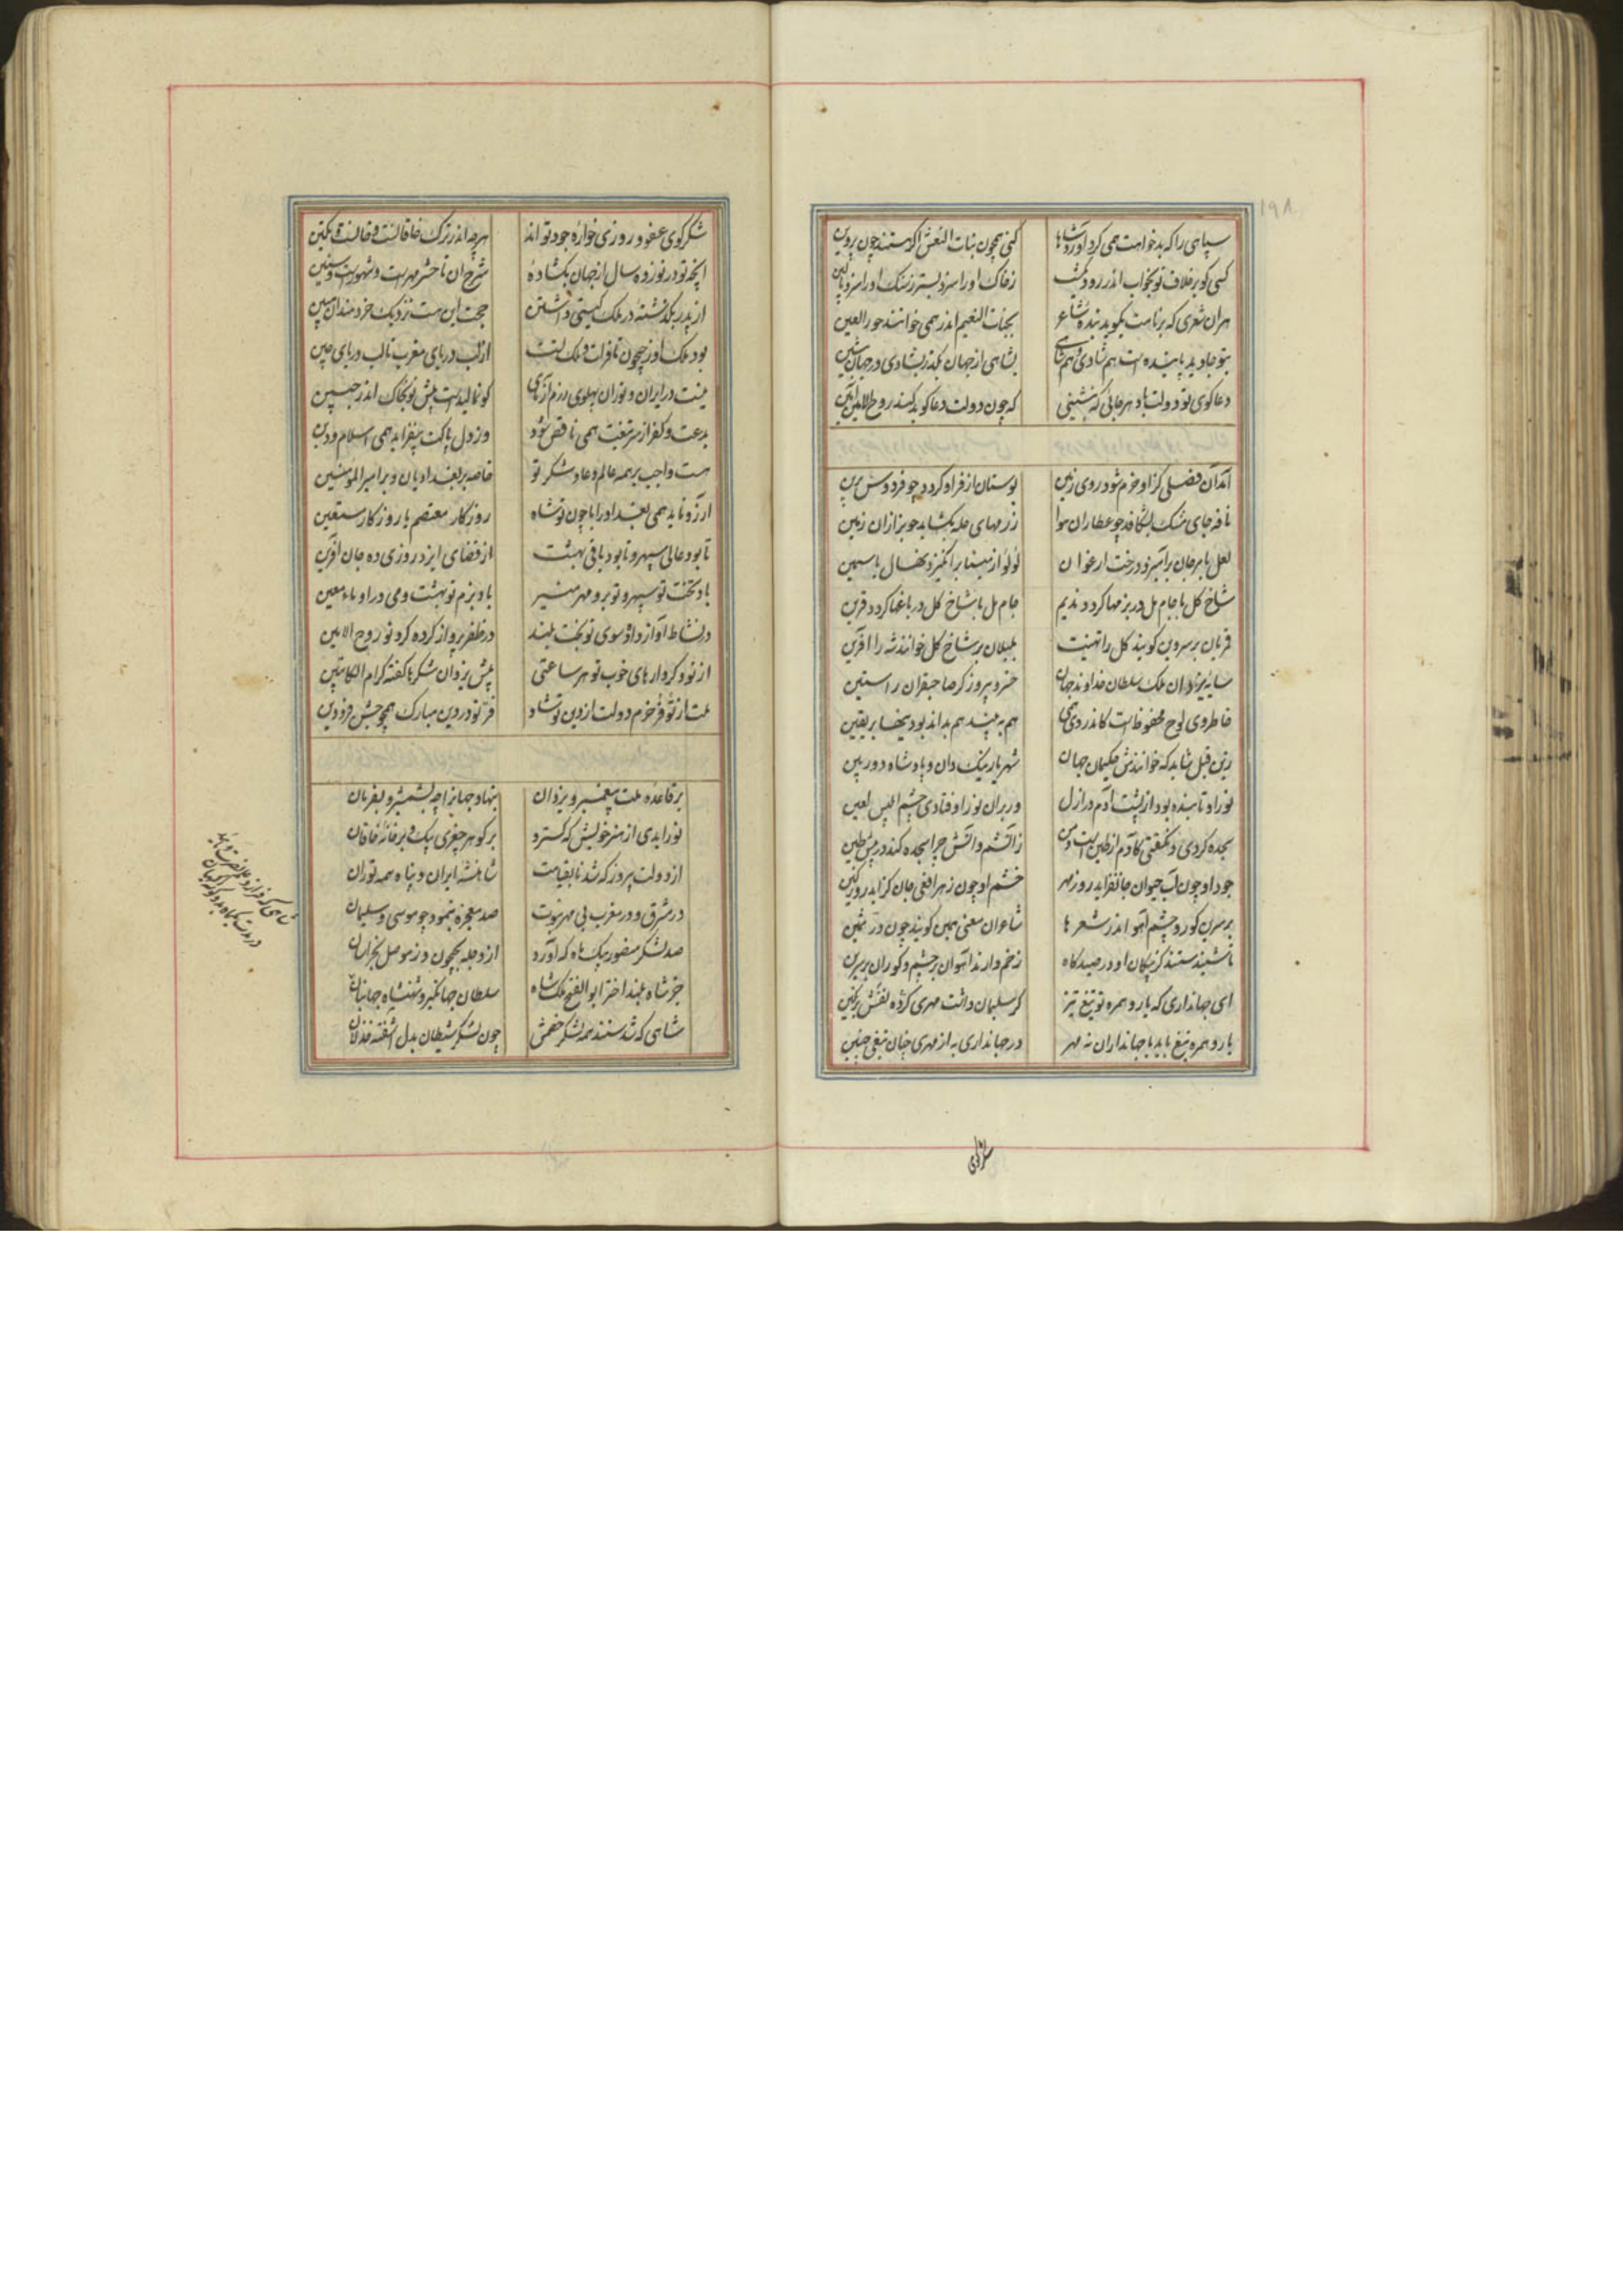 ۱۹۸
سپاهی را که بدخواهت همی گرد آورد شاها
کنی همچون بنات النعش اگر هستند چون پروین
کسی کو بر خلاف تو بخواب اندر رود یکشب
ز خاک او را سزد بستر ز سنگ او را سزد بالین
هر آن شعری که بر نامت بگوید بنده شاعر
بجنات النعیم اندر همی خوانند حور العین
بتو جاوید پاینده است هم شادی و هم شاهی
بشاهی از جهان مگذر بشادی در جهان بنشین
دعاگوی تو دولت باد هر جائی که بنشینی
که چون دولت دعا گوید کند روح الامین آمین
آمد آن فصلی کز او خرم شود روی زمین
بوستان از فر او گردد چو فردوس برین
نافه‌های مشک بشکافد چو عطاران هوا
رزمهای حله بگشاید چو بزازان زمین
لعل با مرجان برآمیزد درخت ارغوان
لؤلؤ از مینا برانگیزد نهال یاسمین
شاخ گل با جام مل در بزمها گردد ندیم
جام مل با شاخ گل در باغها گردد قرین
قمریان بر سرو بن گویند گل را تهنیت
بلبلان بر شاخ گل خوانند شه را آفرین
سایه یزدان ملک سلطان خداوند جهان
خسرو پیروزگر صاحبقران راستین
خاطر وی لوح محفوظ است کاندر وی همی
هم به بیند هم بداند بودنیها بر یقین
زین قبل شاید که خوانندش حکیمان جهان
شهریار نیک دان و پادشاه دوربین
نور او تابنده بود از پشت آدم در ازل
ور بر آن نور اوفتادی چشم ابلیس لعین
سجده کردی و نگفتی کادم از طین است و من
ز آتشم و آتش چرا سجده کند در پیش طین
جود او چون آب حیوان جانفزاید روز مهر
خشم او چون زهر افعی جان گزاید روز کین
بر سرین گور و چشم آهو اندر شعرها
شاعران معنی همین گویند چون در ثمین
تا شنیدستند کز پیکان او در صیدگاه
زخم دارند آهوان بر چشم و گوران بر سرین
ای جهانداری که یار و همره تو تیغ تیز
گر سلیمان داشت مهری کرده نقشش بر نگین
یار و همره تیغ باید با جهانداران نه مهر
در جهانداری به از مهری چنان تیغی چنین
شکرگوی
شکرگوی عفو و روزی خواره جود تو اند
هر چه اندر ترک خاقانست و خانست و تکین
آنچه تو در نوزده سال از جهان بگشاده
شرح آن تا حشر مهر است و شهور است و سنین
از پدر بگذشته در ملک گیتی داشتن
حجت این هست نزدیک خردمندان مبین
بود ملک او ز جیحون تا فرات و ملک تست
از لب دریای مغرب تا لب دریای چین
نیست در ایران و توران پهلوی رزم آزمای
کو نمالیدست پیش تو بخاک اندر جبین
بدعت و کفر از سر تیغت همی ناقص شود
وز دل پاکت بیفزاید همی اسلام و دین
هست واجب بر همه عالم دعا و شکر تو
خاصه بر بغدادیان و بر امیرالمؤمنین
آرزو ناید همی بغداد را با چون تو شاه
روزگار معتصم یا روزگار مستعین
تا بود عالی سپهر و تا بود باقی بهشت
از قضای ایزد روزی ده جان آفرین
باد تختت تو سپهر و تو برو مهر منیر
باد بزم تو بهشت و می در او ماء معین
در نشاط آواز داده سوی تو بخت بلند
در ظفر پرواز کرده گرد تو روح الامین
از تو و کردارهای خوب تو هر ساعتی
پیش یزدان شکرها گفته کرام الکاتبین
ملت از تو فرخ و خرم دولت از دین تو شاد
فر تو در دین مبارک همچو جشن فرودین
بر قاعده ملت پیغمبر و یزدان
بنهاد جهان را چه بشمشیر و بفرمان
نور ابدی از هنر خویش که گسترد
بر گوهر چغری بیک و بر خانه خاقان
از دولت پیروز که شد تا بقیامت
شاهنشه ایران و پناه همه توران
در مشرق و در مغرب بی مهر نبوت
صد معجزه بنمود چو موسی و سلیمان
صد لشکر منصور بیک ماه که آورد
از دجله بجیحون و ز موصل بخراسان
جز شاه بلند اختر ابوالفتح ملکشاه
سلطان جهانگیر و شهنشاه جهانبان
شاهی که شدستند همه لشکر خصمش
چون لشکر شیطان بدل آشفته خذلان